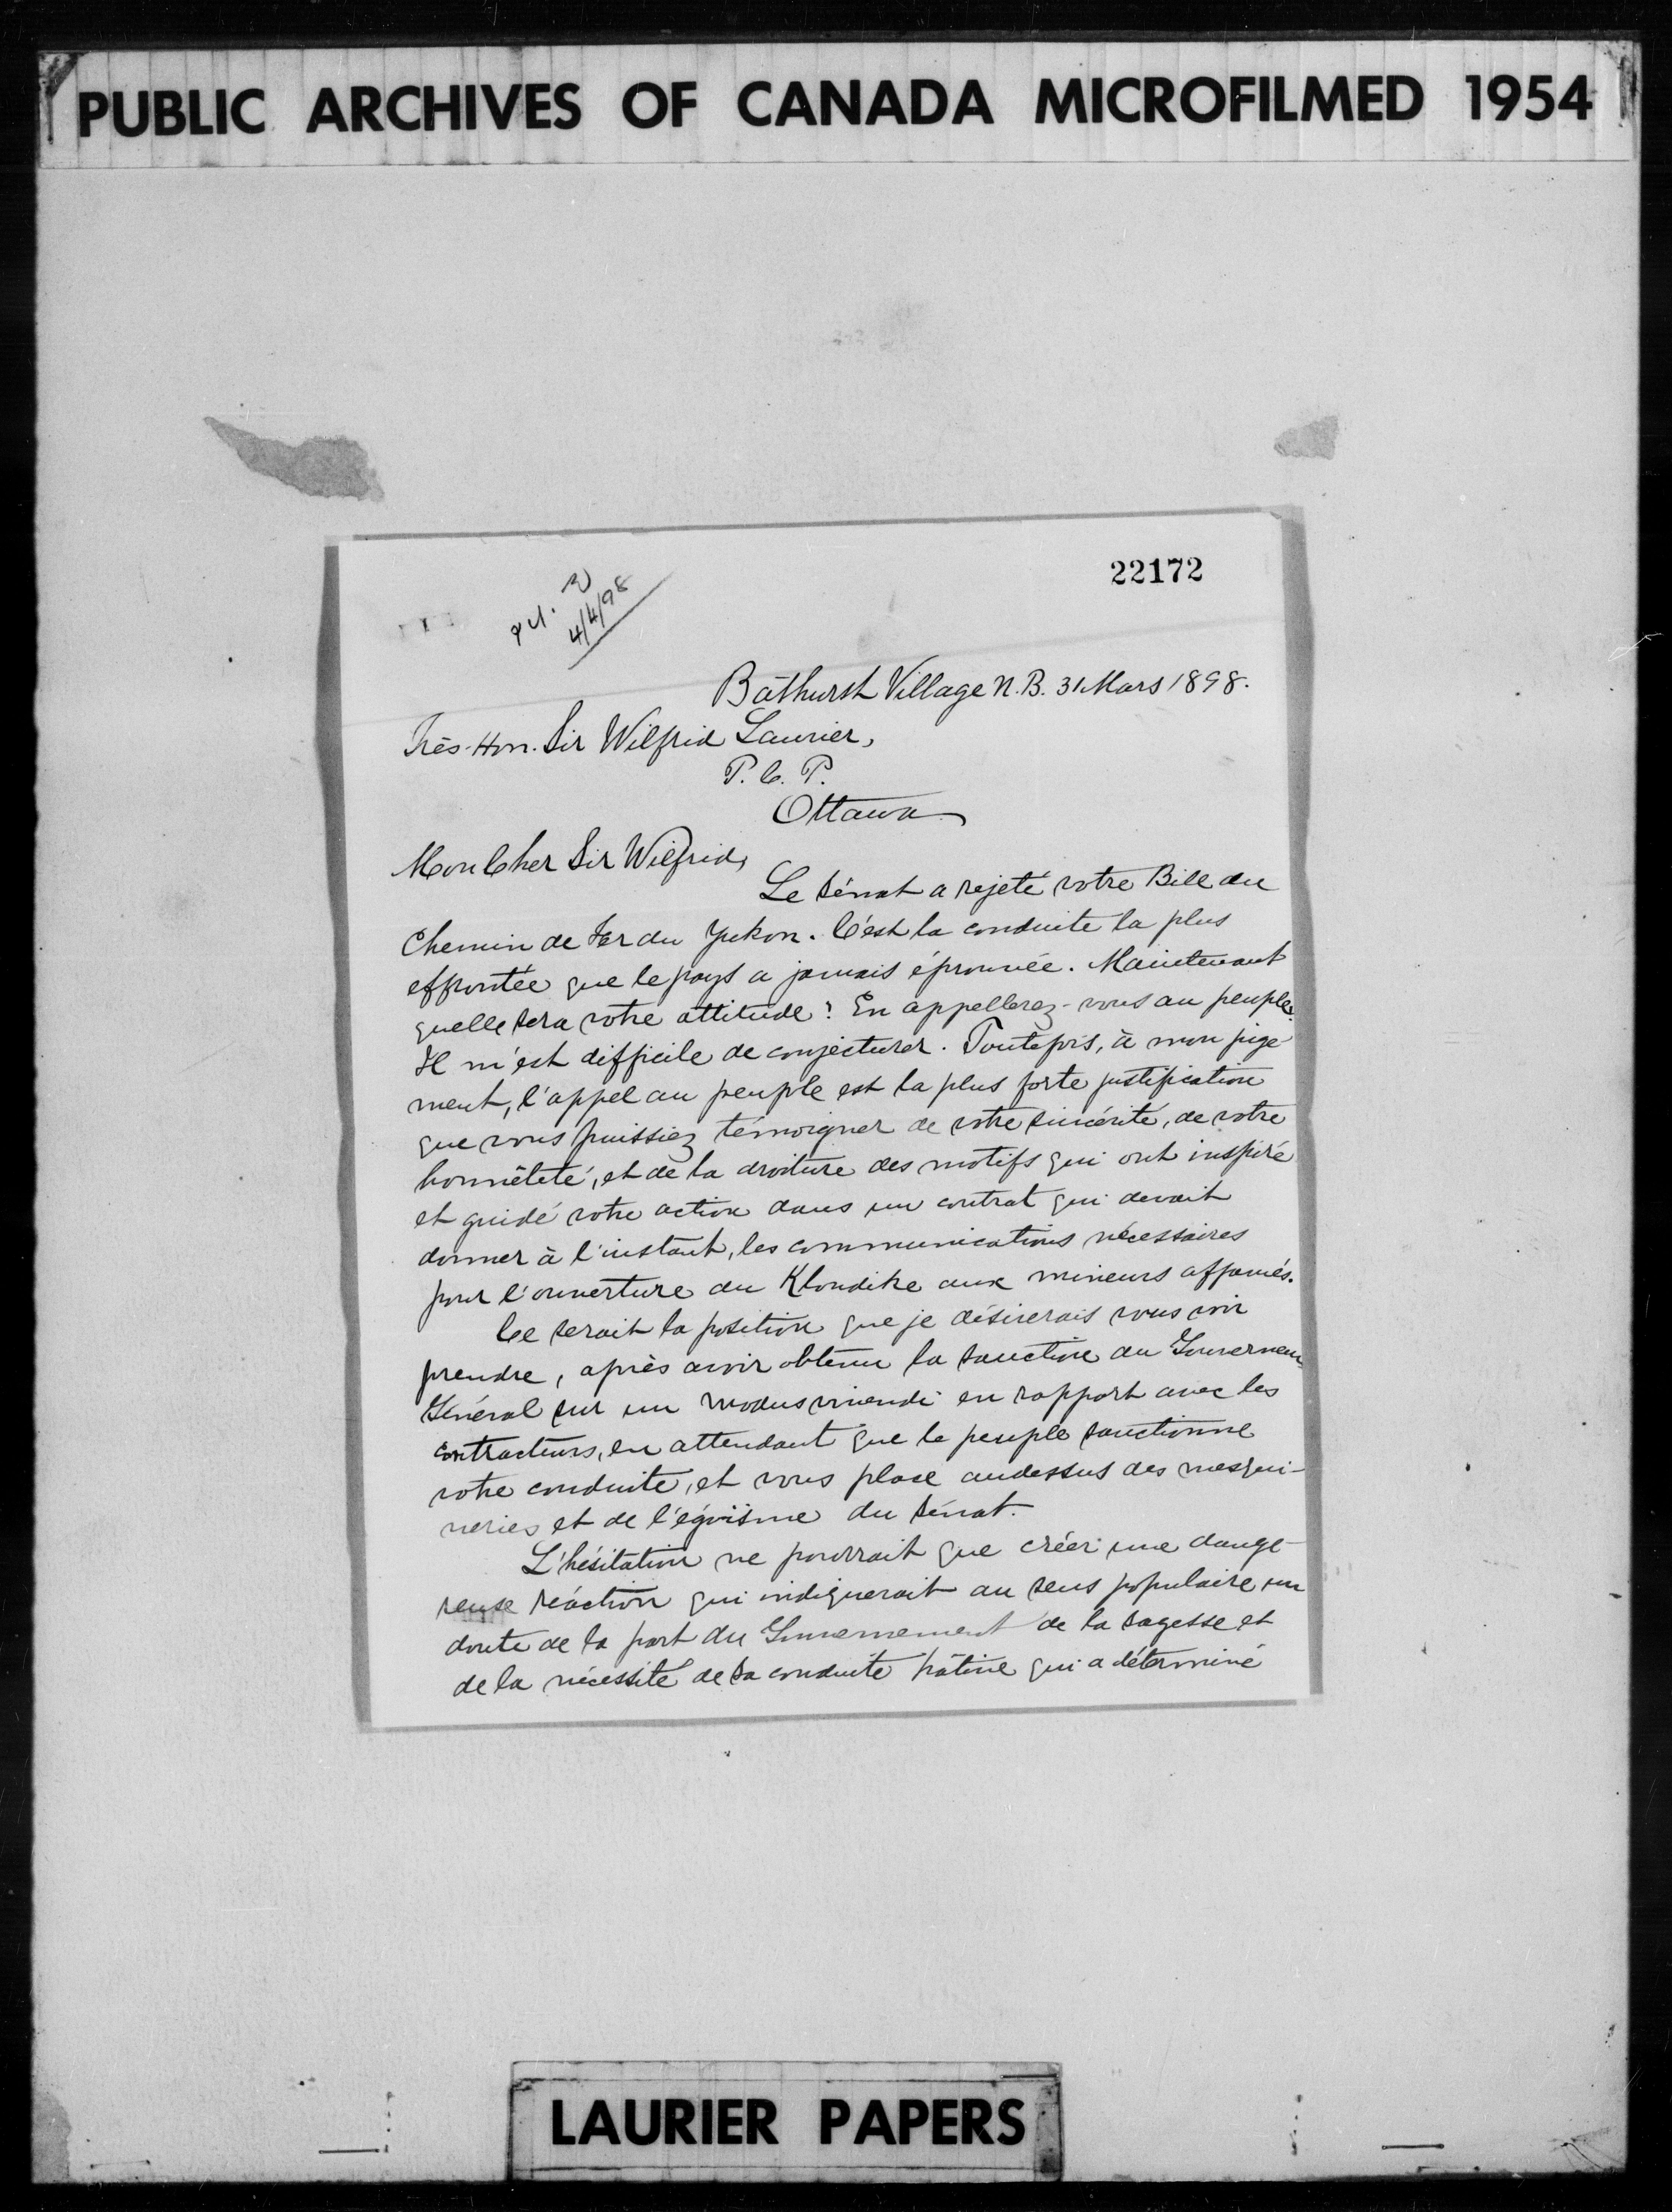 PUBLIC ARCHIVES OF CANADA MICROFILMED 1954
22172
4/4/98
Bathurst Village N.B. 31 Mars 1898.
Très-Hon. Sir Wilfrid Laurier,
P. C. P.
Ottawa
Mon Cher Sir Wilfrid,
Le Sénat a rejeté votre Bill du
Chemin de Fer du Yukon. C'est la conduite la plus
effrontée que le pays a jamais éprouvée. Maintenant
quelle sera votre attitude? En appellerez-vous au peuple?
Il m'est difficile de conjecturer. Toutefois, à mon juge-
ment, l'appel au peuple est la plus forte justification
que vous puissiez témoigner de votre sincérité, de votre
honnêteté, et de la droiture des motifs qui ont inspiré
et guidé votre action dans un contrat qui devait
donner à l'instant, les communications nécessaires
pour l'ouverture du Klondike aux mineurs affamés.
Ce serait la position que je désirerais vous voir
prendre, après avoir obtenu la sanction du Gouverneur
Général sur un modus vivendi en rapport avec les
contracteurs, en attendant que le peuple sanctionne
votre conduite, et vous place audessus des mesqui-
neries et de l'égoïsme du Sénat.
L'hésitation ne pourrait que créer une dange-
reuse réaction qui indiquerait au sens populaire un
doute de la part du Gouvernement de la sagesse et
de la nécessité de sa conduite hâtive qui a déterminé
LAURIER PAPERS